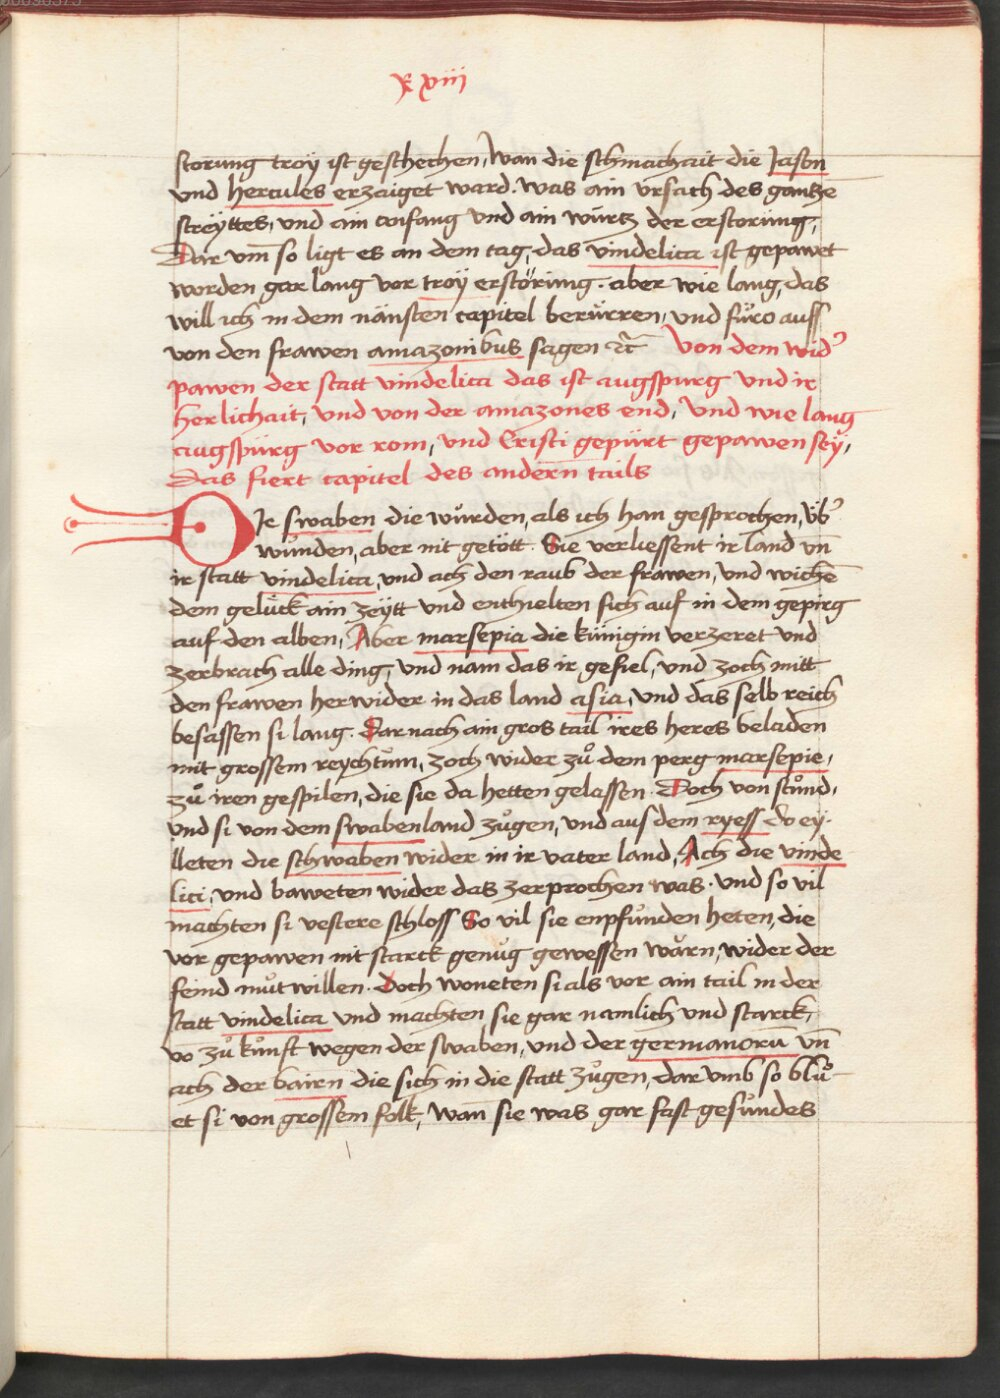 R xviij
storung troÿ ist gesthechen, wan die schmachait die Jason
und hercules erzaiget ward. was ain ursach des gantze
streÿttes, und ain anfang und ain würtz der erstorüng,
Dar um̅ so ligt es an dem tag, das vindelica ist gepawet
worden gar lang vor troÿ erstörüng. aber wie lang, das
will ich in dem nänsten capitel berürren, und füro auss
von den frawen amazonibus sagen ꝛc̅ Von dem wid͛
pawen der statt vindelica das ist augspurg und ir
herlichait, und von der amazones end, und wie lang
augspürg vor rom, und Cristi gepürt gepawen seÿ,
Das fiert capitel des andern tails
DIe swaben die wůrden, als ich han gesprochen, üb͛
wůnden, aber nit getött. Sie verliessent ir land vn̅
ir statt vindelica, und ach den raub der frawen, und wiche̅
dem gelück ain zeÿtt und enthielten sich auf in dem gepirg
auf den alben, Aber marsepia die künigin verzeret und
zerbrach alle ding, und nam das ir gefiel, und zoch mitt
den frawen herwider in das land asia, und das selb reich
besassen si lang. Darnach ain gros tail ires heres beladen
mit grossem reychtům, zoch wider zů dem perg marsepie,
zů iren gespilen, die sie da hetten gelassen. Doch von stůnd,
und si von dem swabenland zůgen, und aus dem ryess do eÿ-
lleten die schwaben wider in ir vater land, Ach die vinde
lici, und baweten wider das zerprochen was. und so vil
machten si vestere schloss So vil sie enpfůnden heten, die
vor gepawen nit starck genůg gewessen wärn, wider der
feind můtwillen. Doch woneten si als vor ain tail in der
statt vindelica und machten sie gar namlich und starck,
vo̅ zů kůnft wegen der swaben, und der germanoru̅ vn̅
ach der bairn die sich in die statt zůgen, dar umb so blů-
et si von grossem folk, wan sie was gar fast gesůndes